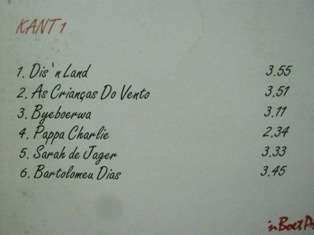 KANT 1
1. Dis 'n Land 3.55
2. As Crianças Do Vento 3.51
3. Byeboerwa 3.11
4. Pappa Charlie 2.34
5. Sarah de Jager 3.33
6. Bartolomeu Dias 3.45
'n Boet